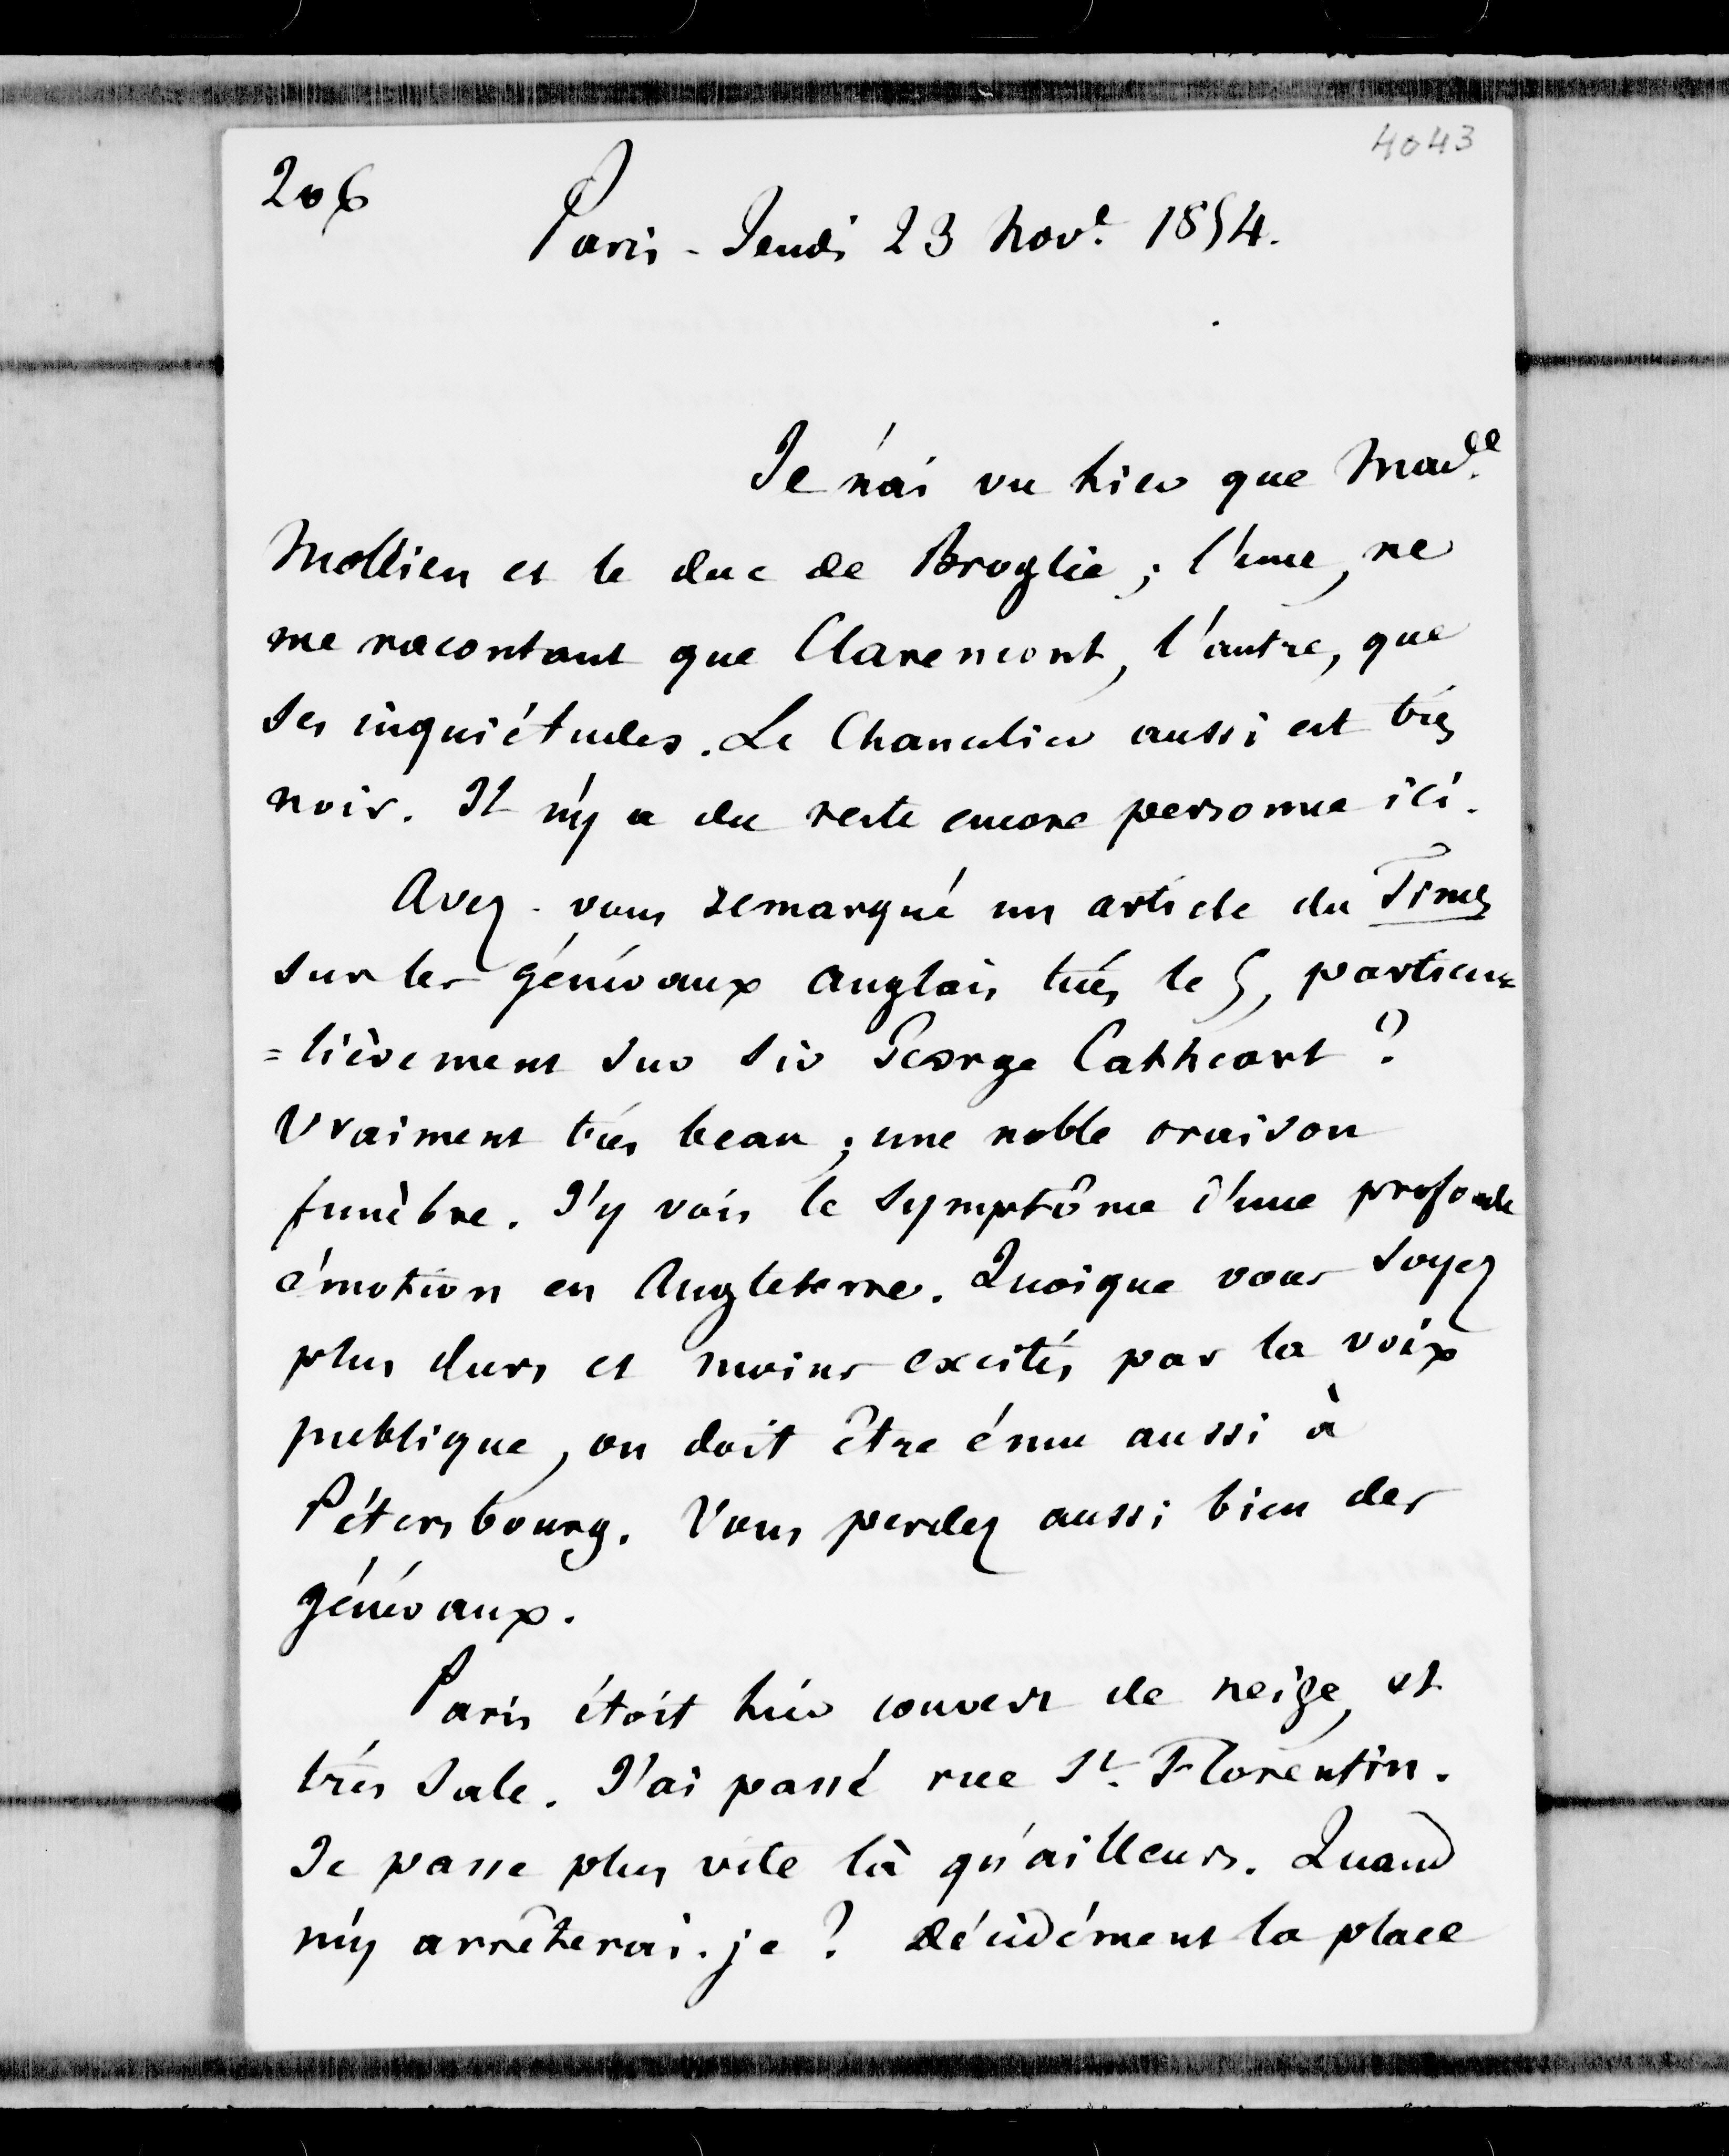 4043
206
Paris - Jeudi 23 Nov.e 1854.
Je n'ai vu hier que Mad.e
Mollien et le duc de Broglie ; l'une, ne
me racontant que Claremont, l'autre, que
ses inquiétudes. Le Chancelier aussi est très
noir. Il n'y a du reste encore personne ici.
Avez-vous remarqué un article du Times
sur les généraux anglais tués le 5, particu=
=lièrement sur Sir George Cathcart ?
Vraiment très beau ; une noble oraison
funèbre. J'y vois le symptôme d'une profonde
émotion en Angleterre. Quoique vous soyez
plus durs et moins excités par la voix
publique, on doit être ému aussi à
Pétersbourg. Vous perdez aussi bien des
généraux.
Paris étoit hier couvert de neige, et
très sale. J'ai passé rue St. Florentin.
Je passe plus vite là qu'ailleurs. Quand
m'y arrêterai-je ? Décidément la place